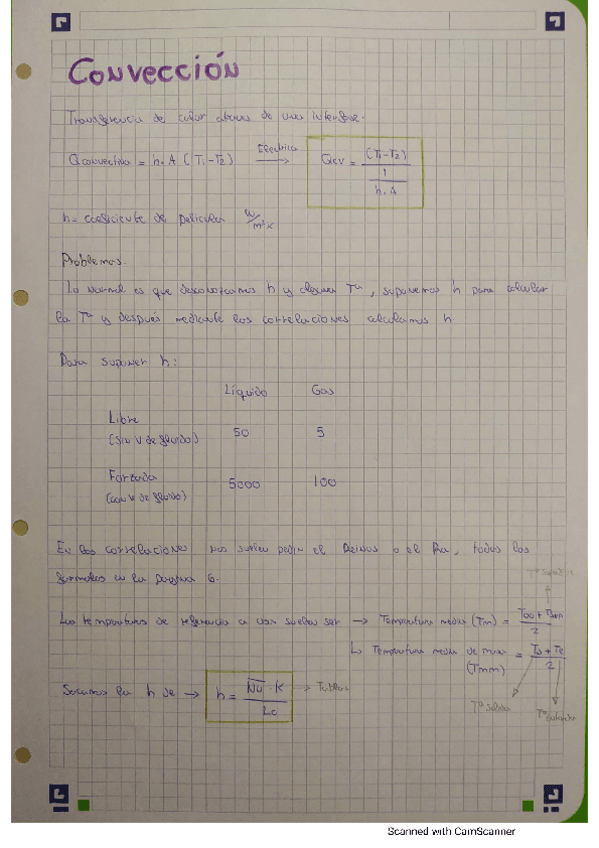 Convección
Transferencia de calor através de una interfase.
Qconvectivo = h · A ( T1 - T2 ) Eléctrico → Qcv = (T1-T2) / 1 / h · A
h = coeficiente de película W/m²K
Problemas.
Lo normal es que desconozcamos h y alguna Tª, suponemos h para calcular
la Tª y después mediante las correlaciones calculamos h
Para suponer h:
Líquido Gas
Libre
(sin V de fluido) 50 5
Forzada
(con V de fluido) 5000 100
En las correlaciones nos suelen pedir el o el Ra, todas las
formulas en la página 6.
Tª superficie
Las temperaturas de referencia a usar suelen ser → Temperatura media (Tm) = T∞ + / 2
↳ Temperatura media de = Ts + Te / 2
(Tmm)
Sacamos la h de → h = Nu · K / Lc → Tablas
Tª salida
Tª entrada
Scanned with CamScanner